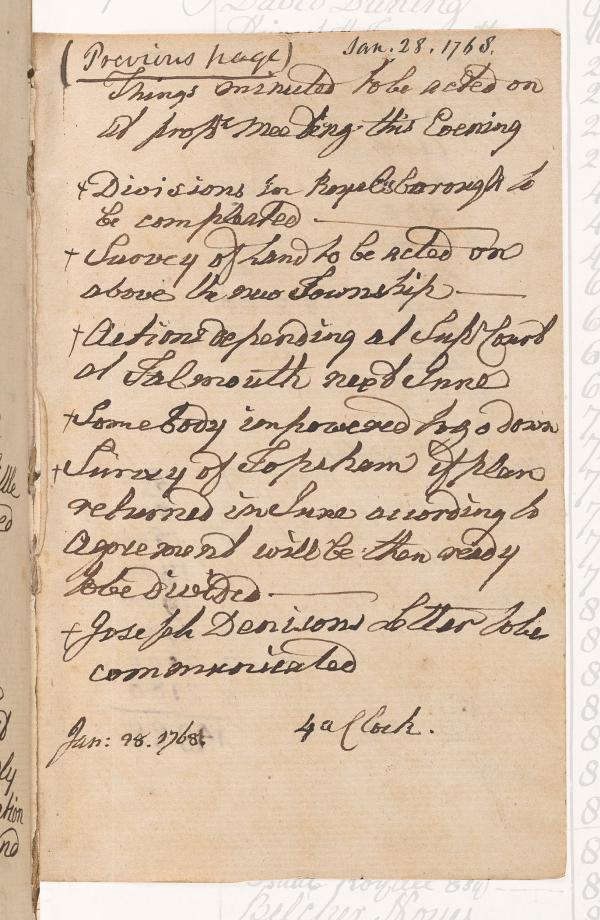 (Previous page) Jan. 28. 1768.
Things minuted to be acted on
at prop.rs Meeting this Evening
+ Divisions in Royalsborough to
be compleated
+ Survey of Land to be acted on
above the new Township
+ Actions depending at Sup.r Court
at Falmouth next June
+ Some Body impowered to go down
+ Survey of Topsham if plan
returned in June according to
Agreement will be then ready
to be divided
+ Joseph Denisons Letter to be
communicated
Jan: 28. 1768. 4 a Clock.